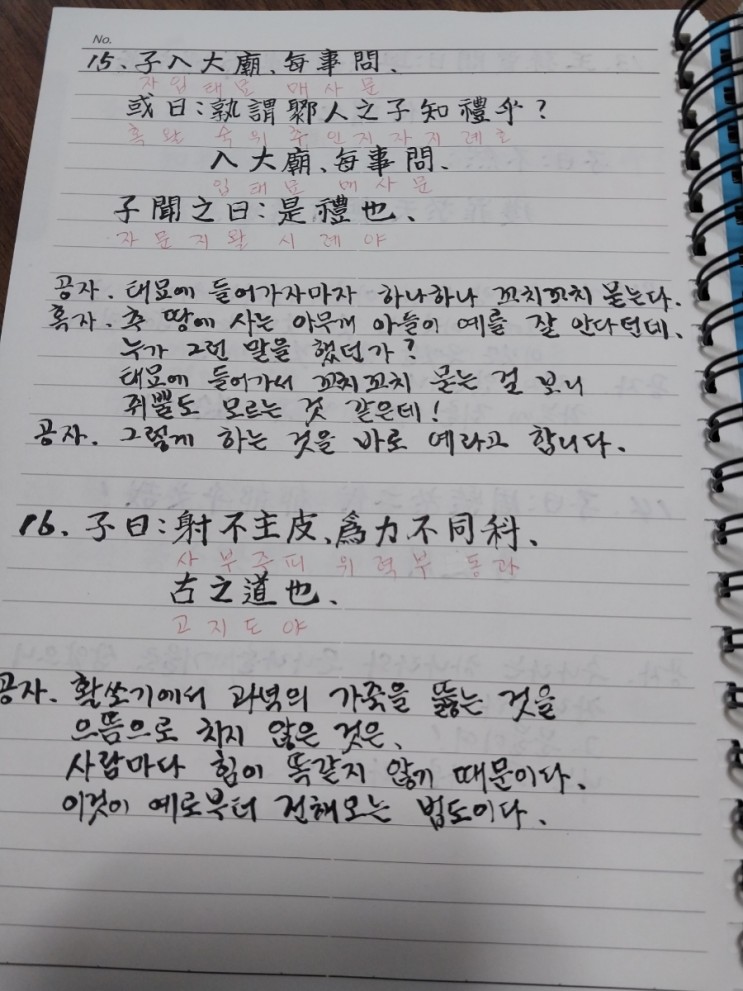 No.
15. 子入大廟、每事問、
자입태묘 매사문
或曰:孰謂鄹人之子知禮乎?
혹왈 숙위추인지자지례호
入大廟、每事問、
입태묘 매사문
子聞之曰:是禮也、
자문지왈 시례야
공자. 태묘에 들어가자마자 하나하나 꼬치꼬치 묻는다.
혹자. 추 땅에 사는 아무개 아들이 예를 잘 안다던데.
누가 그런 말을 했던가?
태묘에 들어가서 꼬치꼬치 묻는 걸 보니
쥐뿔도 모르는 것 같은데!
공자. 그렇게 하는 것을 바로 예라고 합니다.
16. 子曰:射不主皮、爲力不同科、
사부주피 위력부동과
古之道也、
고지도야
공자. 활쏘기에서 과녁의 가죽을 뚫는 것을
으뜸으로 치지 않은 것은、
사람마다 힘이 똑같지 않기 때문이다.
이것이 예로부터 전해오는 법도이다.